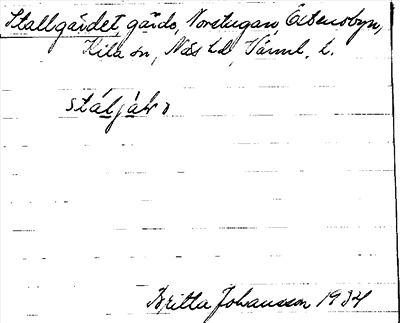 Stallgärdet, gärde, Norstugan Edsensbyn,
Kila sn, Näs hd, Värml. l.
stáljáḷ₂
Britta Johansson 1934